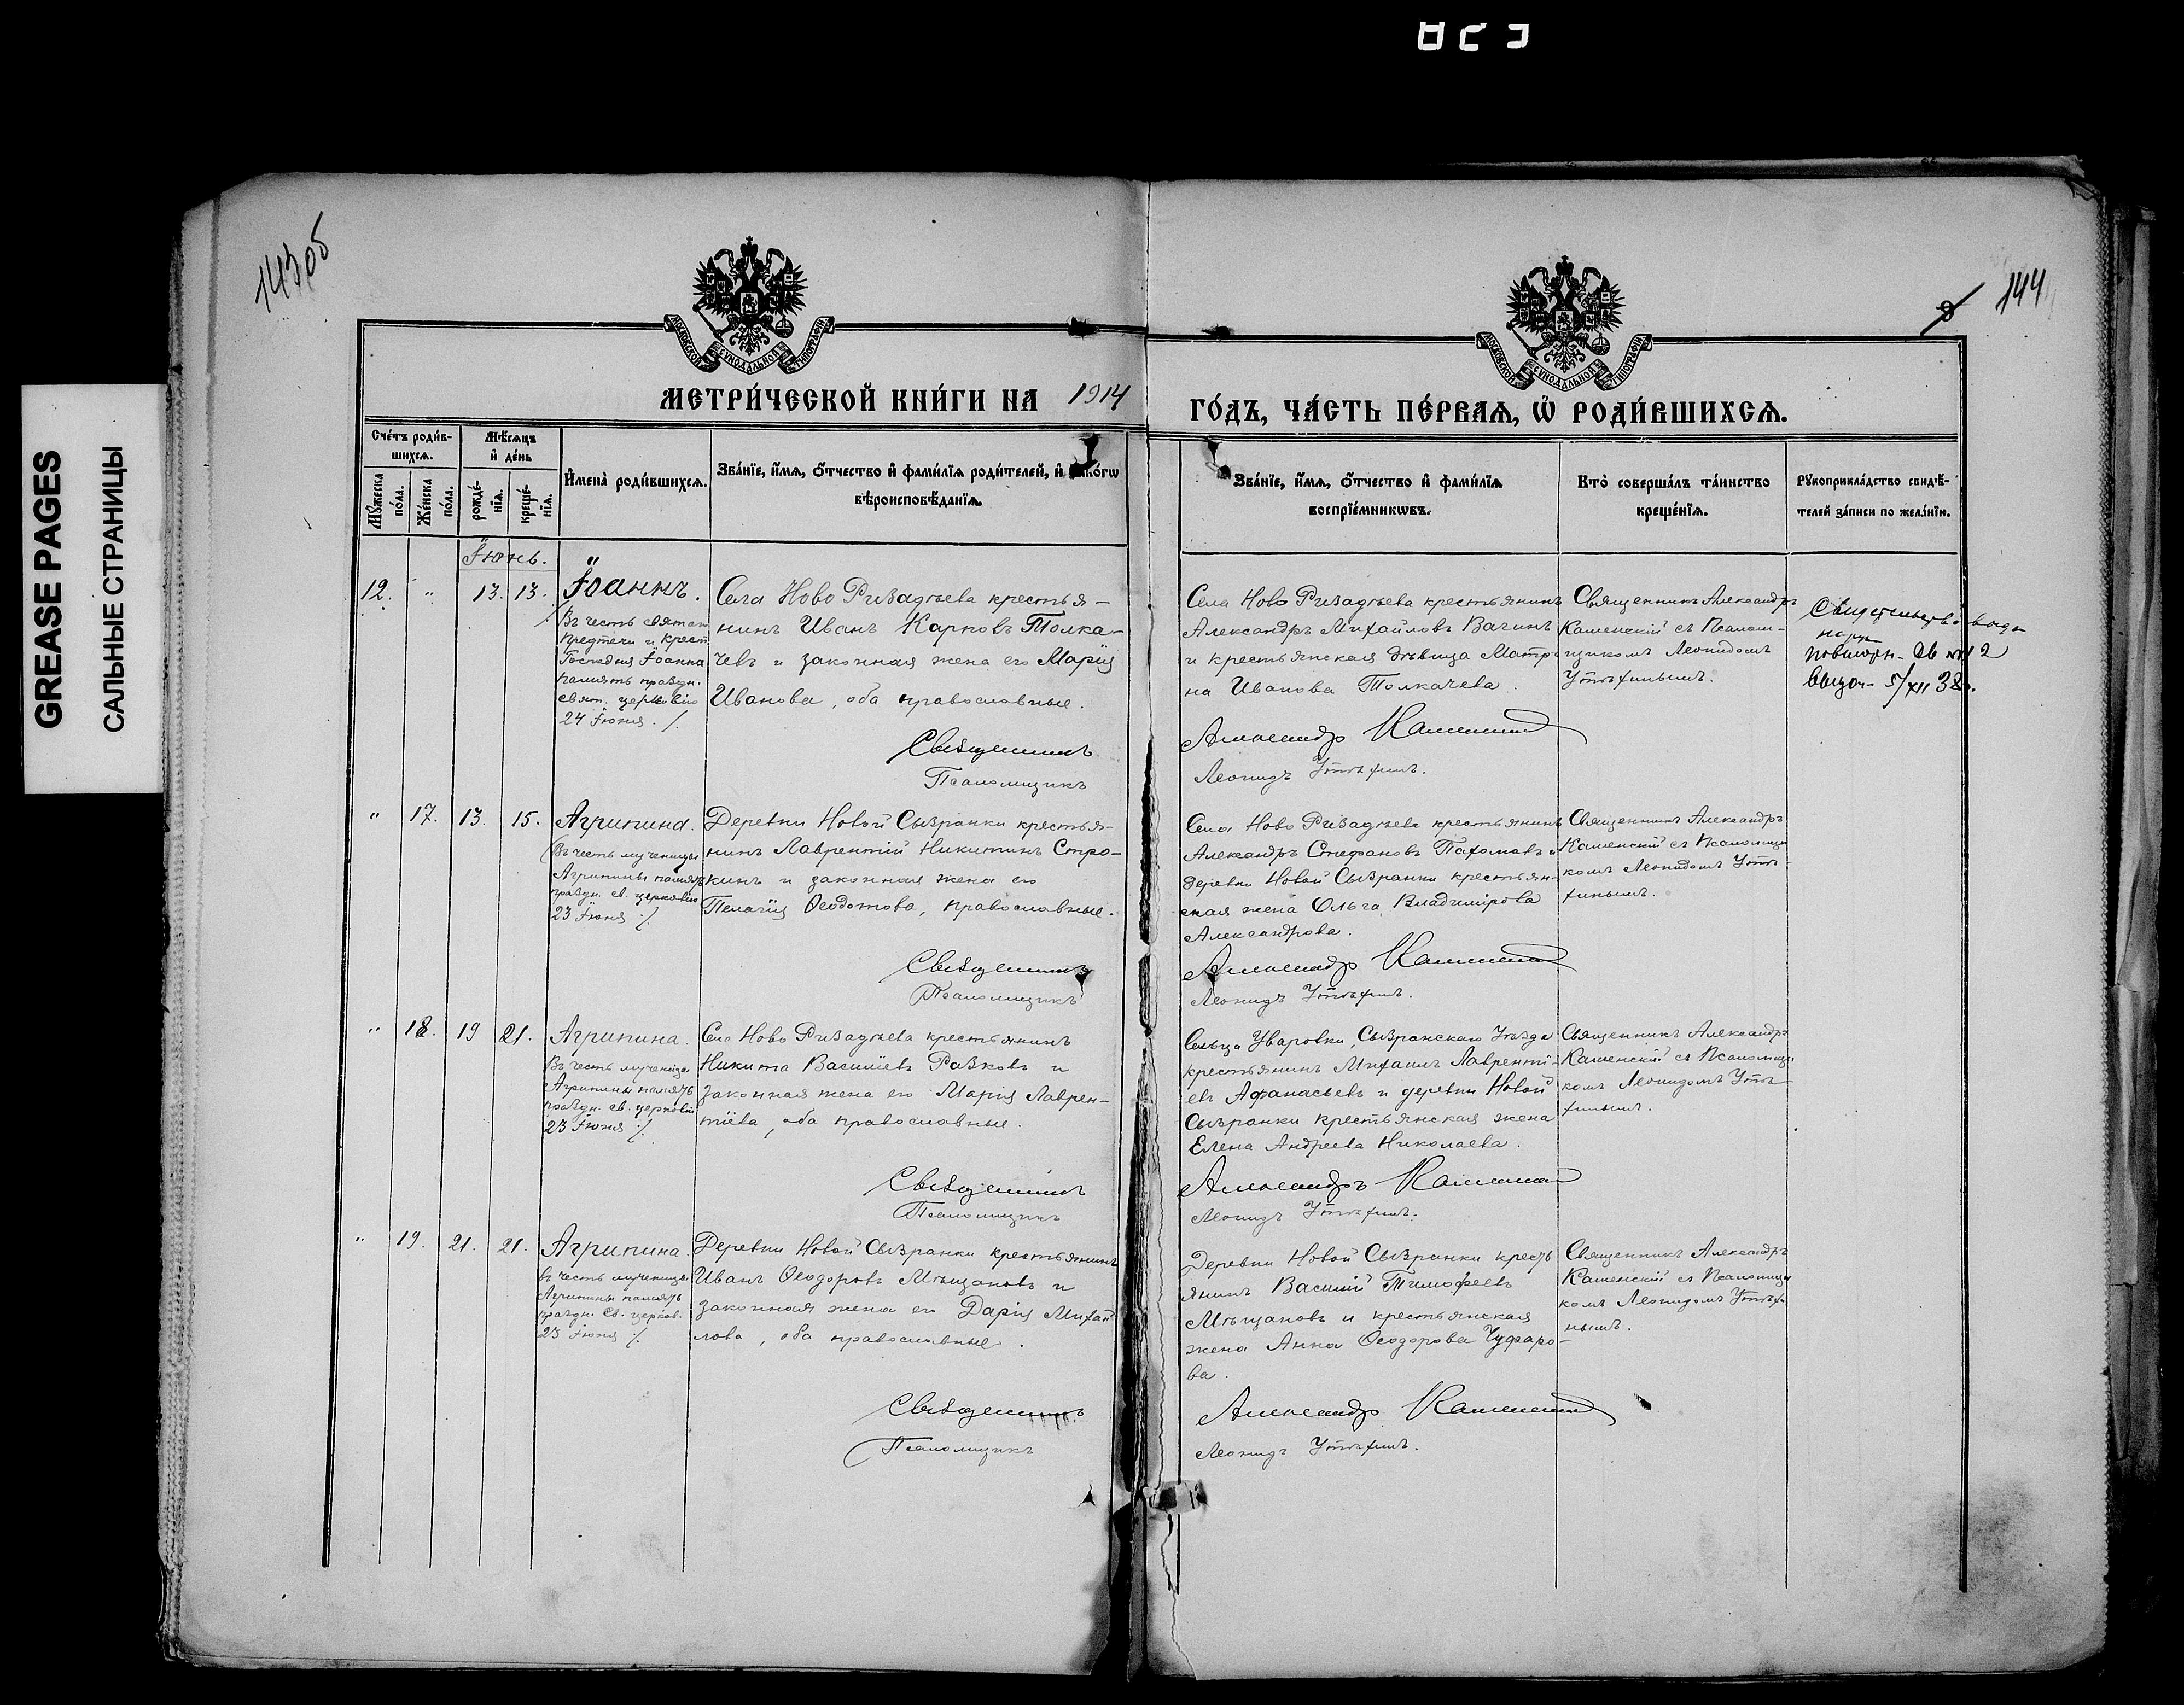 GREASE PAGES
САЛЬНЫЕ СТРАНИЦЫ
143об
144
МОСКОВСКОЙ СѴНОДАЛЬНОЙ ТИПОГРАФІИ
МОСКОВСКОЙ СѴНОДАЛЬНОЙ ТИПОГРАФІИ
МЕТРИ́ЧЕСКОЙ КНИ́ГИ НА 1914
ГО́ДЪ, ЧА́СТЬ ПЕ́РВАЯ, Ѡ҆ РОДИ́ВШИХСЯ.
Сче́тъ роди́в-
шихся.
Мꙋ́жеска
по́ла.
Же́нска
по́ла.
Мѣ́сяцъ
и҆ де́нь
рожде́-
нїя.
креще́-
нїя.
И҆мена̀ роди́вшихся.
Зва́нїе, и҆́мя, о҆́тчество и҆ фами́лїя роди́телей, и҆ како́гѡ
вѣроисповѣ́данїя.
Зва́нїе, и҆́мя, о҆́тчество и҆ фами́лїя
воспрїе́мникѡвъ.
Кто̀ соверша́лъ та́инство
креще́нїя.
Рꙋкоприкла́дство свидѣ́-
телей за́писи по жела́нїю.
Іюнь.
12. " 13. 13. Іоаннъ.
Въ честь святаго
Предтечи и Крест.
Господня Іоанна
память праздн.
свят. церковію
24 Іюня ./.
Села Ново Ризадѣева крестья-
нинъ Иванъ Карповъ Толка-
чевъ и законная жена его Марія
Иванова, оба православные.
Священникъ
Псаломщикъ
Села Ново Ризадѣева крестьянинъ
Александръ Михайловъ Вагинъ
и крестьянская дѣвица Матро-
на Иванова Толкачева.
Александръ Каменскій
Леонидъ Утѣхинъ.
Священникъ Александръ
Каменскій съ Псалом-
щикомъ Леонидомъ
Утѣхинымъ.
повторн.
5/XII 38
" 17. 13. 15. Агрипина.
Въ честь мученицы
Агрипины память
праздн. св. церковію
23 Іюня ./.
Деревни Новой Сызранки крестья-
нинъ Лаврентій Никитинъ Стро-
кинъ и законная жена его
Пелагія Ѳеодотова, православные.
Священникъ
Псаломщикъ
Села Ново Ризадѣева крестьянинъ
Александръ Стефановъ Пахомовъ и
деревни Новой Сызранки крестьян-
ская жена Ольга Владимірова
Александрова.
Александръ Каменскій
Леонидъ Утѣхинъ.
Священникъ Александръ
Каменскій съ Псаломщи-
комъ Леонидомъ Утѣ-
хинымъ.
" 18. 19 21. Агрипина.
Въ честь мученицы
Агрипины память
праздн. св. церковію
23 Іюня ./.
Села Ново Ризадѣева крестьянинъ
Никита Василіевъ Разковъ и
законная жена его Марія Лаврен-
тіева, оба православные.
Священникъ
Псаломщикъ
Сельца Уваровки, Сызранскаго Уѣзда
крестьянинъ Михаилъ Лавренті-
евъ Афанасьевъ и деревни Новой
Сызранки крестьянская жена
Елена Андреева Николаева.
Александръ Каменскій
Леонидъ Утѣхинъ.
Священникъ Александръ
Каменскій съ Псаломщи-
комъ Леонидомъ Утѣ-
хинымъ.
" 19. 21. 21. Агрипина.
въ честь мученицы
Агрипины память
праздн. св. церков.
23 Іюня ./.
Деревни Новой Сызранки крестьянинъ
Иванъ Ѳеодоровъ Мѣщановъ и
законная жена его Дарія Михай-
лова, оба православные.
Священникъ
Псаломщикъ
Деревни Новой Сызранки кресть
янинъ Василій Тимофеевъ
Мѣщановъ и крестьянская
жена Анна Ѳеодорова Чуфаро-
ва.
Александръ Каменскій
Леонидъ Утѣхинъ.
Священникъ Александръ
Каменскій съ Псаломщи
комъ Леонидомъ Утѣхи-
нымъ.